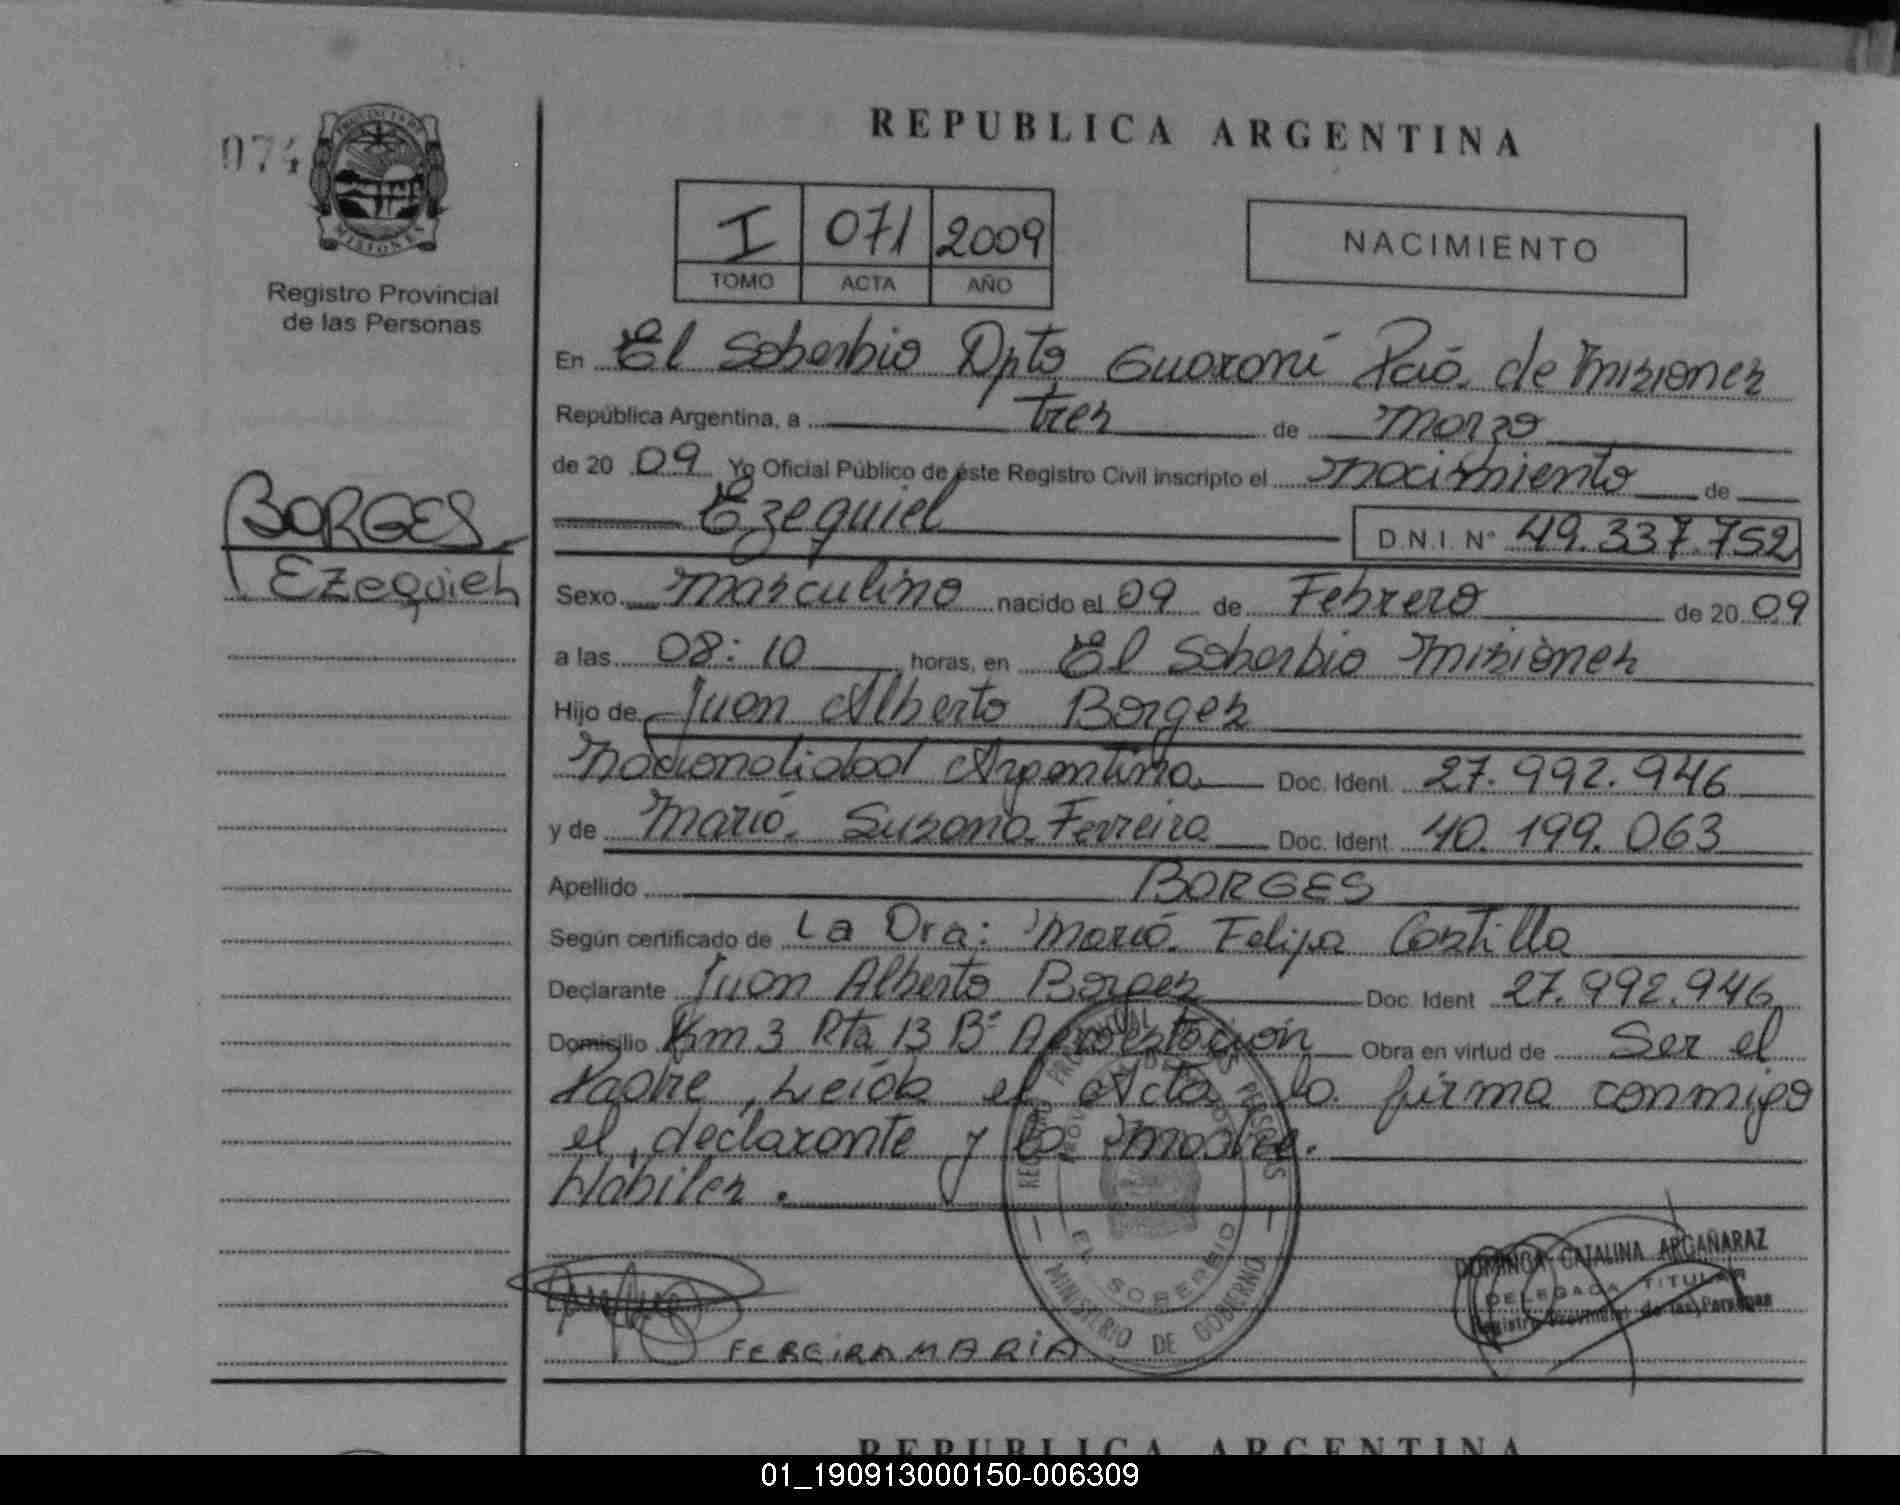 REPUBLICA ARGENTINA
074
PROVINCIA DE
MISIONES
Registro Provincial
de las Personas
I 071 2009
TOMO ACTA AÑO
NACIMIENTO
BORGES
Ezequiel
En El Soberbio Dpto Guaraní Pcia. de Misiones
República Argentina, a tres de Marzo
de 20 09 Yo Oficial Público de éste Registro Civil inscripto el nacimiento de
Ezequiel D.N.I. N° 49.337.752
Sexo masculino nacido el 09 de Febrero de 20 09
a las 08:10 horas, en El Soberbio Misiones
Hijo de Juan Alberto Borges
Nacionalidad Argentina Doc. Ident. 27.992.946
y de María Susana Ferreira Doc. Ident. 40.199.063
Apellido BORGES
Según certificado de La Dra: María Felipa Castilla
Declarante Juan Alberto Borges Doc. Ident 27.992.946
Domicilio Km 3 Rta 13 B° Aeroestación Obra en virtud de Ser el
Padre, Leída el Acta la firma conmigo
el declarante y la madre.
Hábiles.
MINISTERIO DE GOBIERNO
EL SOBERBIO
DOMINGA CATALINA ARGAÑARAZ
DELEGADA TITULAR
Registro Provincial de las Personas
FEREIRA MARIA
REPUBLICA ARGENTINA
01_190913000150-006309